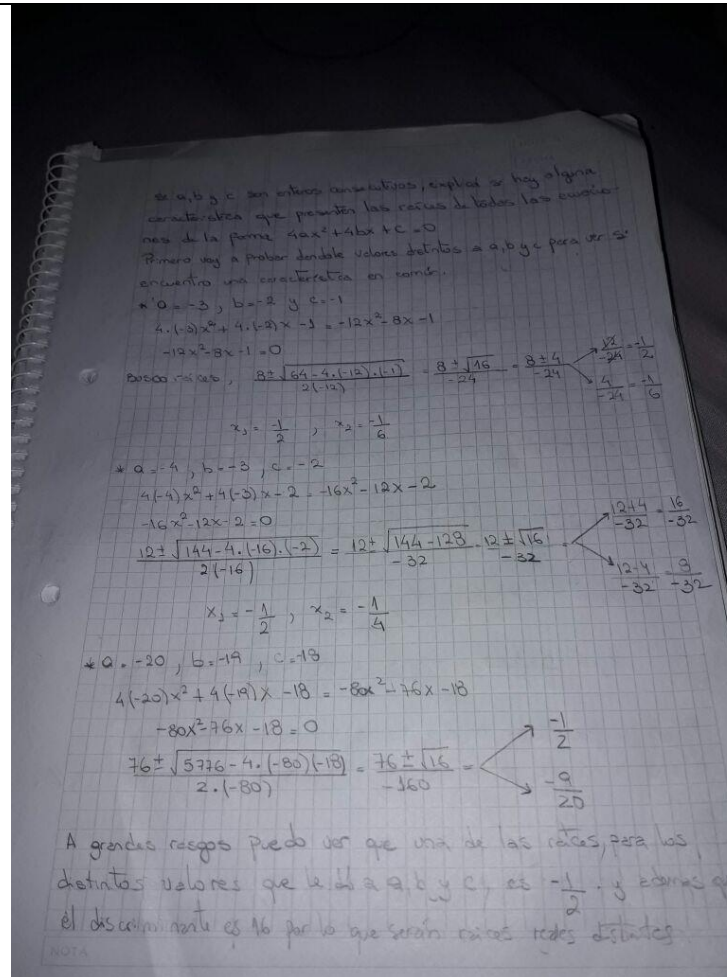 si a, b y c son enteros consecutivos, explicá si hay alguna
característica que presenten las raíces de todas las ecuacio-
nes de la forma 4ax² + 4bx + c = 0
Primero voy a probar dandole valores distintos a a, b y c para ver si
encuentro una característica en común.
* a = -3, b = -2 y c = -1
4.(-3)x² + 4.(-2)x - 1 = -12x² - 8x - 1
-12x² - 8x - 1 = 0
Busco raíces, (8 ± √(64 - 4.(-12).(-1)))/(2(-12)) = (8 ± √16)/(-24) = (8 ± 4)/(-24) → 12/-24 = -1/2
→ 4/-24 = -1/6
x₁ = -1/2, x₂ = -1/6
* a = -4, b = -3, c = -2
4(-4)x² + 4(-3)x - 2 = -16x² - 12x - 2
-16x² - 12x - 2 = 0
(12 ± √(144 - 4.(-16).(-2)))/(2(-16)) = (12 ± √(144 - 128))/(-32) = (12 ± √16)/(-32) = → (12+4)/-32 = 16/-32
→ (12-4)/-32 = 9/-32
x₁ = -1/2, x₂ = -1/4
* a = -20, b = -19, c = -18
4(-20)x² + 4(-19)x - 18 = -80x² - 76x - 18
-80x² - 76x - 18 = 0
(76 ± √(5776 - 4.(-80)(-18)))/(2.(-80)) = (76 ± √16)/(-160) = → -1/2
→ -9/20
A grandes rasgos puedo ver que una de las raíces, para los
distintos valores que le di a a, b y c, es -1/2. y además
el discriminante es 16 por lo que serán raíces reales distintas.
NOTA